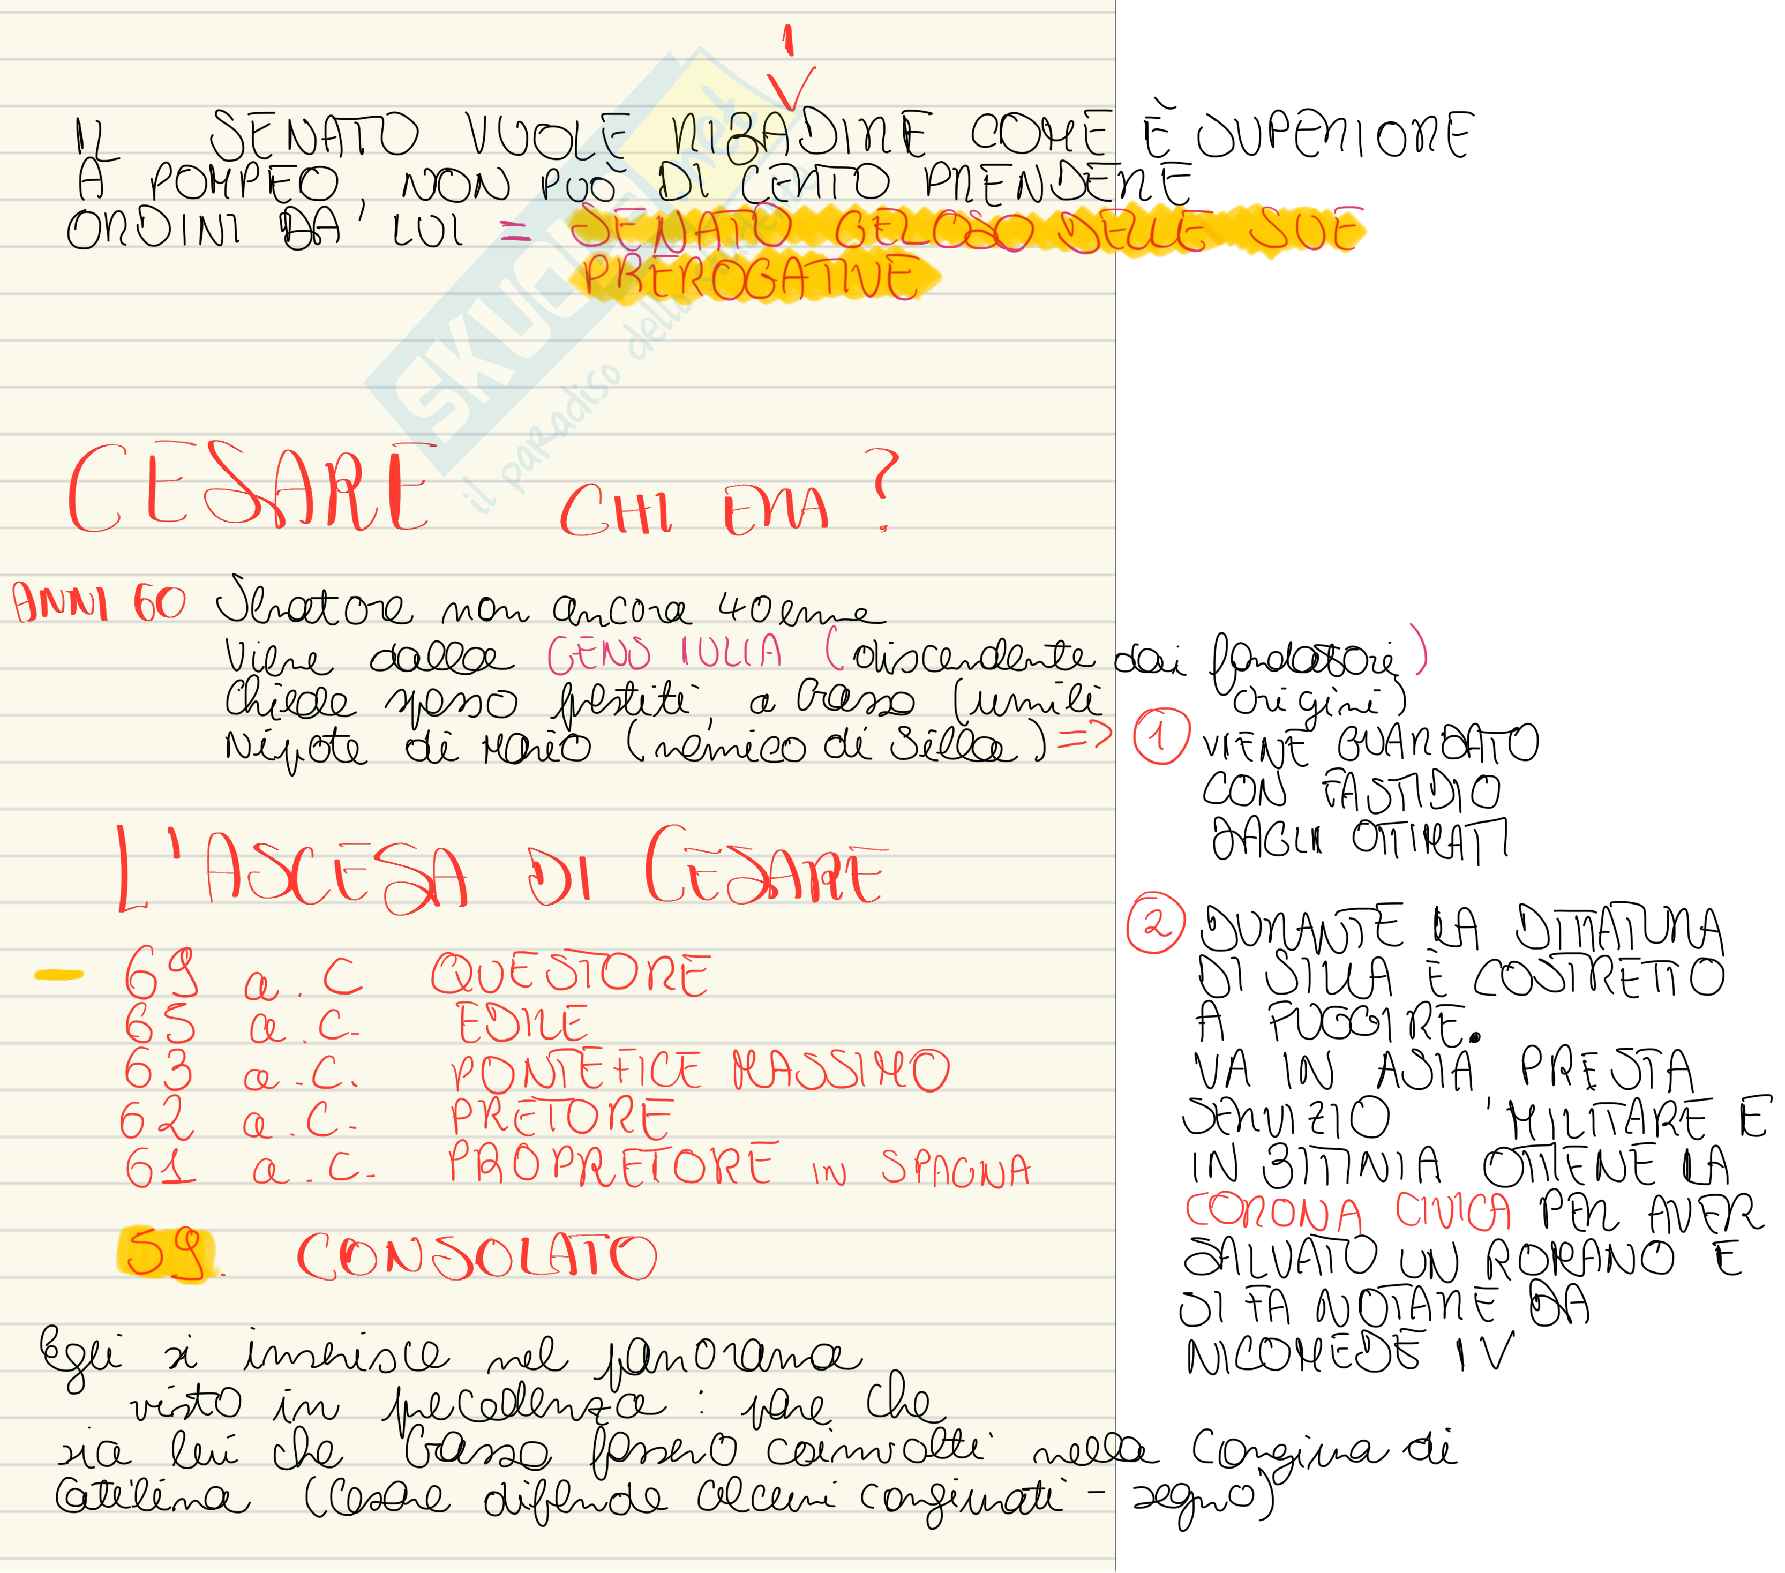 1
IL SENATO VUOLE RIBADIRE COME È SUPERIORE
A POMPEO, NON PUÒ DI CERTO PRENDERE
ORDINI DA LUI = SENATO GELOSO DELLE SUE
PREROGATIVE
SKUOLA.net
il paradiso dello
CESARE CHI ERA?
ANNI 60 Senatore non ancora 40enne
Viene dalla GENS IULIA (discendente dai fondatori)
Chiede spesso prestiti, a Crasso (umili origini)
Nipote di Mario (nemico di Silla) =>
1 VIENE GUARDATO
CON FASTIDIO
DAGLI OTTIMATI
L'ASCESA DI CESARE
- 69 a.C QUESTORE
65 a.C. EDILE
63 a.C. PONTEFICE MASSIMO
62 a.C. PRETORE
61 a.C. PROPRETORE IN SPAGNA
59. CONSOLATO
2 DURANTE LA DITTATURA
DI SILLA È COSTRETTO
A FUGGIRE.
VA IN ASIA PRESTA
SERVIZIO MILITARE E
IN BITINIA OTTIENE LA
CORONA CIVICA PER AVER
SALVATO UN ROMANO E
SI FA NOTARE DA
NICOMEDE IV
Egli si inserisce nel panorama
visto in precedenza: pare che
sia lui che Crasso fossero coinvolti nella congiura di
Catilina (Cesare difende alcuni congiurati - segno)